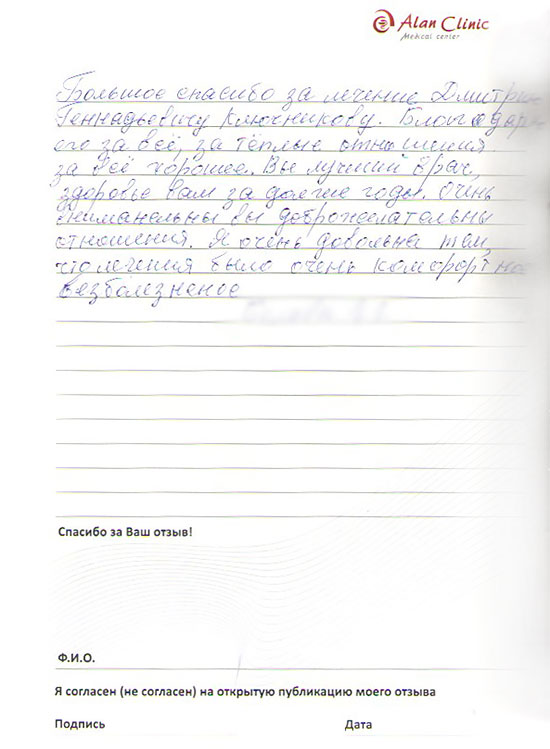 Alan Clinic
Medical center
Большое спасибо за лечение Дмитрию
Геннадьевичу Ключникову. Благодарю
его за всё, за тёплые отношения
за всё хорошее. Вы лучший врач,
здоровье вам за долгие годы. Очень
внимательны вы доброжелательны
отношения. Я очень довольна тем,
что лечения было очень комфортное
безболезненое
Спасибо за Ваш отзыв!
Ф.И.О.
Я согласен (не согласен) на открытую публикацию моего отзыва
Подпись Дата